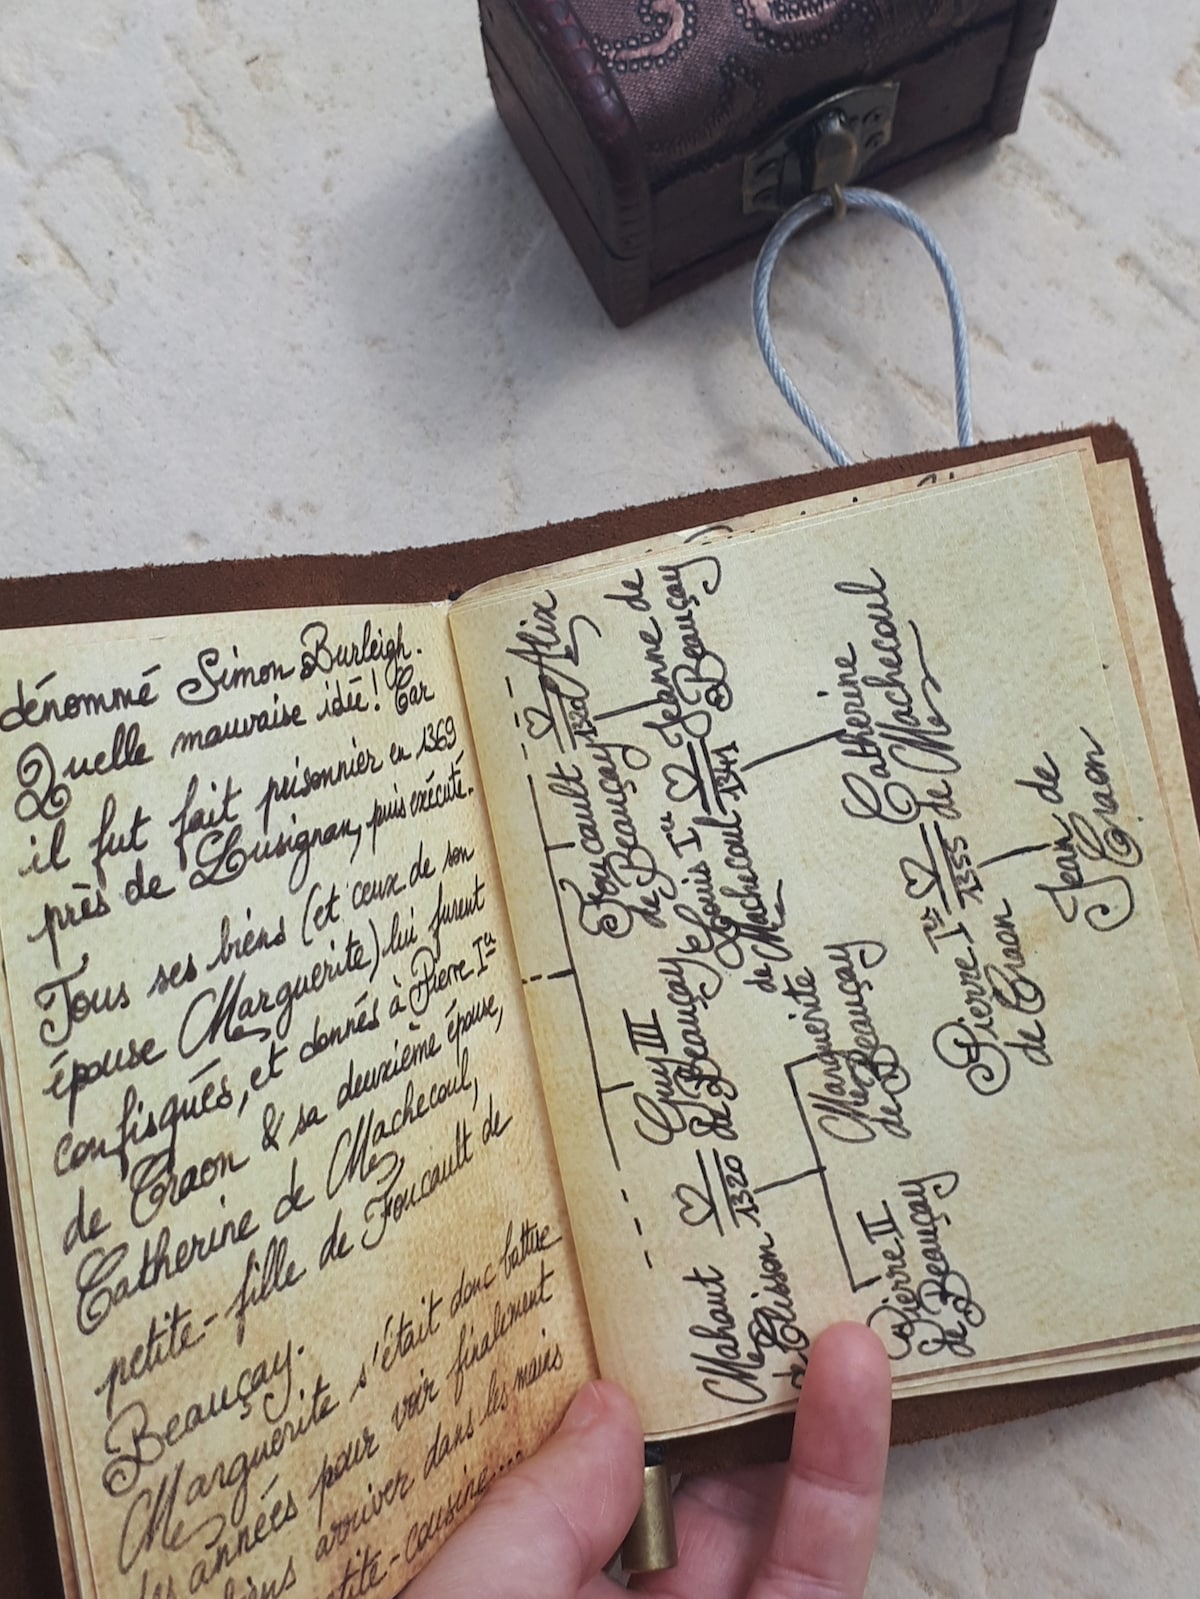 dénommé Simon Burleigh.
Quelle mauvaise idée! Car
il fut fait prisonnier en 1369
près de Lusignan, puis exécuté.
Tous ses biens (et ceux de son
épouse Marguerite) lui furent
confisqués, et donnés à Pierre Ier
de Craon & sa deuxième épouse,
Catherine de Machecoul,
petite-fille de Foucault de
Beauçay.
Marguerite s'était donc battue
des années pour voir finalement
biens arriver dans les mains
petite-cousine...
Foucault ♡ Alix
de Beauçay 1320
Mahaut ♡ Guy III
de Clisson 1320 de Beauçay
Louis Ier ♡ Jeanne de
de Machecoul 1341 Beauçay
Pierre II
de Beauçay
Marguerite
de Beauçay
Pierre Ier ♡ Catherine
de Craon 1355 de Machecoul
Jean de
Craon